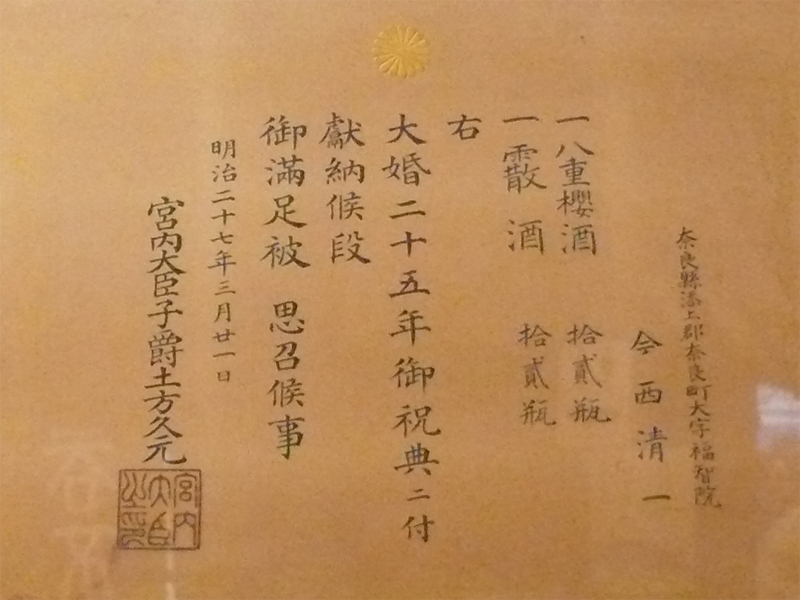 奈良縣添上郡奈良町大字福智院
今西清一
一八重櫻酒 拾貳瓶
一霰酒 拾貳瓶
右
大婚二十五年御祝典ニ付
獻納候段
御滿足被 思召候事
明治二十七年三月廿一日
宮内大臣子爵土方久元
宮内大臣之印